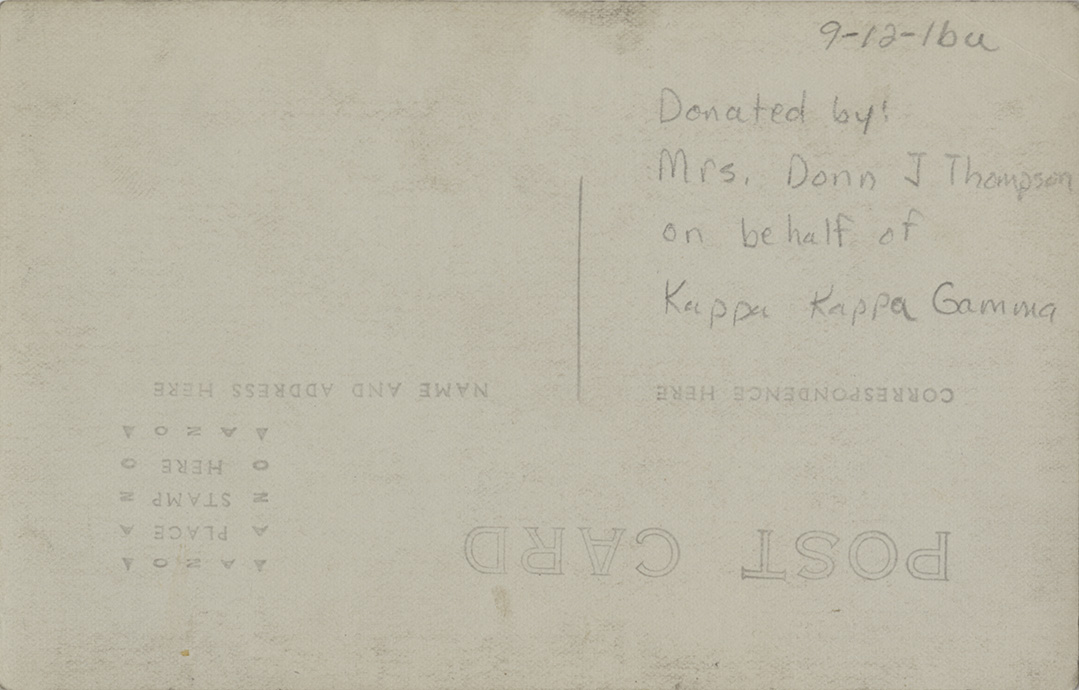 9-12-16a
Donated by:
Mrs. Donn J Thompson
on behalf of
Kappa Kappa Gamma
POST CARD
CORRESPONDENCE HERE
NAME AND ADDRESS HERE
▲ A Z O ▲
A PLACE A
Z STAMP Z
O HERE O
▲ A Z O ▲